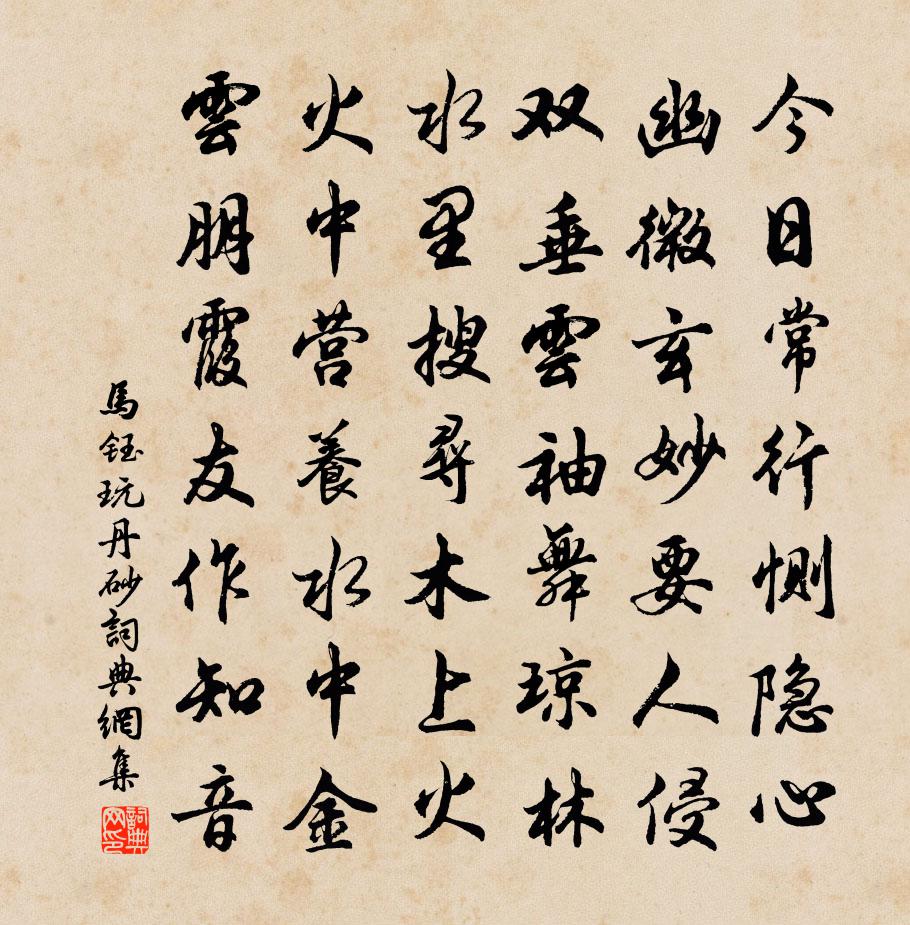 今日常行恻隐心
幽微玄妙要人侵
双垂雲袖舞琼林
水里搜尋木上火
火中营養水中金
雲朋霞友作知音
馬鈺玩丹砂詞典網集
詞典网印